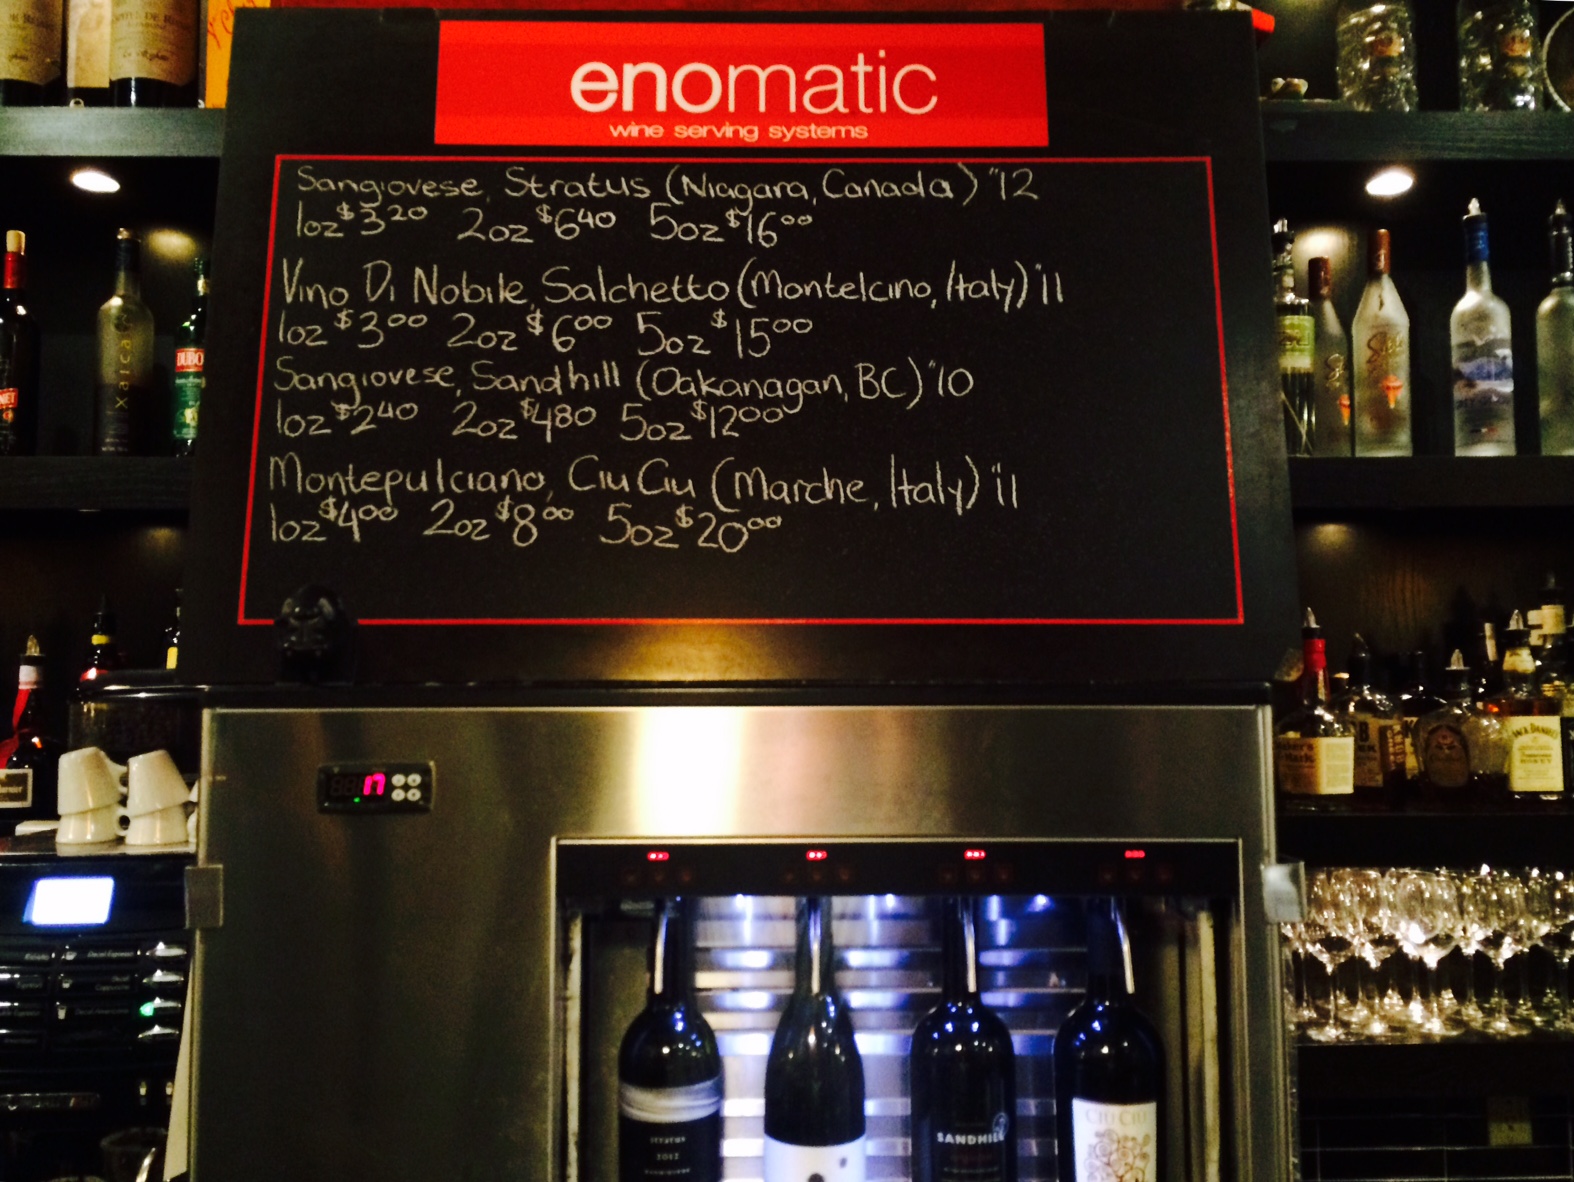 enomatic
wine serving systems
Sangiovese, Stratus (Niagara, Canada) "12
1oz $3 20 2oz $6 40 5oz $16 00
Vino Di Nobile, Salchetto (Montelcino, Italy) "11
1oz $3 00 2oz $6 00 5oz $15 00
Sangiovese, Sandhill (Oakanagan, BC) "10
1oz $2 40 2oz $4 80 5oz $12 00
Montepulciano, Ciu Ciu (Marche, Italy) "11
1oz $4 00 2oz $8 00 5oz $20 00
17
xaica
DUBO
stratus
2012
SANDHILL
CIU CIU
JACK DANIEL'S